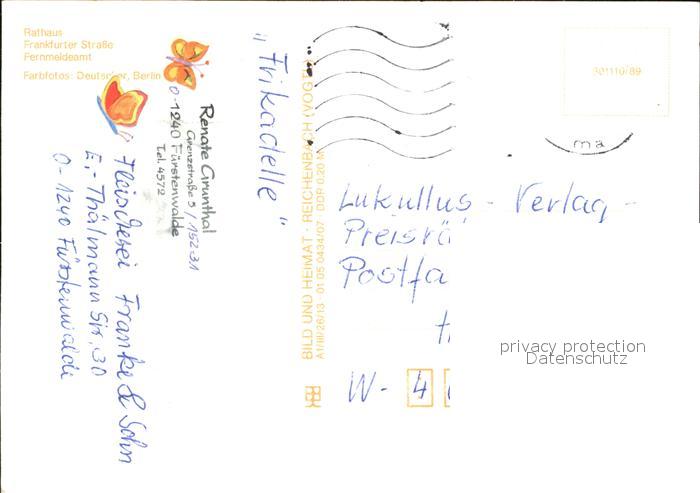 Rathaus
Frankfurter Straße
Fernmeldeamt
Farbfotos: Deutscher, Berlin
Renate Grunthal
Grenzstraße 5 / 15231
O-1240 Fürstenwalde
Tel. 4572
Fleischerei Franke & Sohn
E.-Thälmann Str. 30
O-1240 Fürstenwalde
„Frikadelle"
BILD UND HEIMAT · REICHENBACH (VOGTL
A1/III/26/13 01 05 0434/07 DDR 0,20 M
301110/89
ma
Lukullus - Verlag -
Preisrä
Postfa
W- 4
privacy protection
Datenschutz